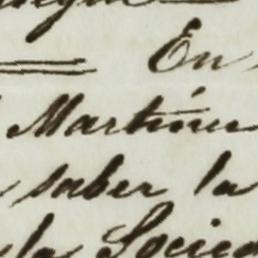 En
Martinez
saber la
la Socied